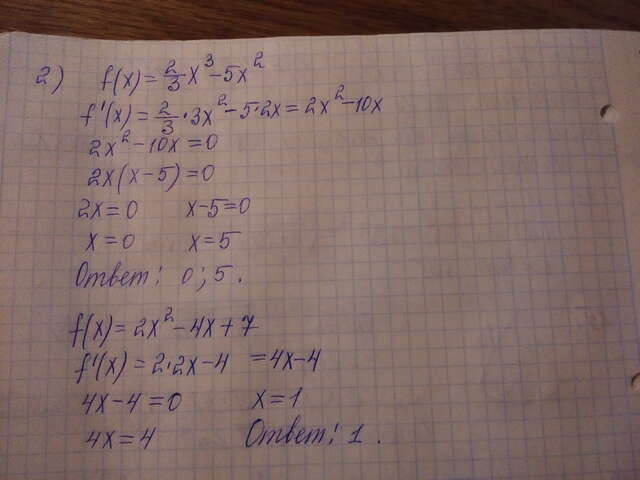 2) f(x) = 2/3 x³ - 5x²
f'(x) = 2/3 · 3x² - 5·2x = 2x² - 10x
2x² - 10x = 0
2x(x - 5) = 0
2x = 0 x - 5 = 0
x = 0 x = 5
Ответ: 0; 5.
f(x) = 2x² - 4x + 7
f'(x) = 2·2x - 4 = 4x - 4
4x - 4 = 0 x = 1
4x = 4 Ответ: 1.